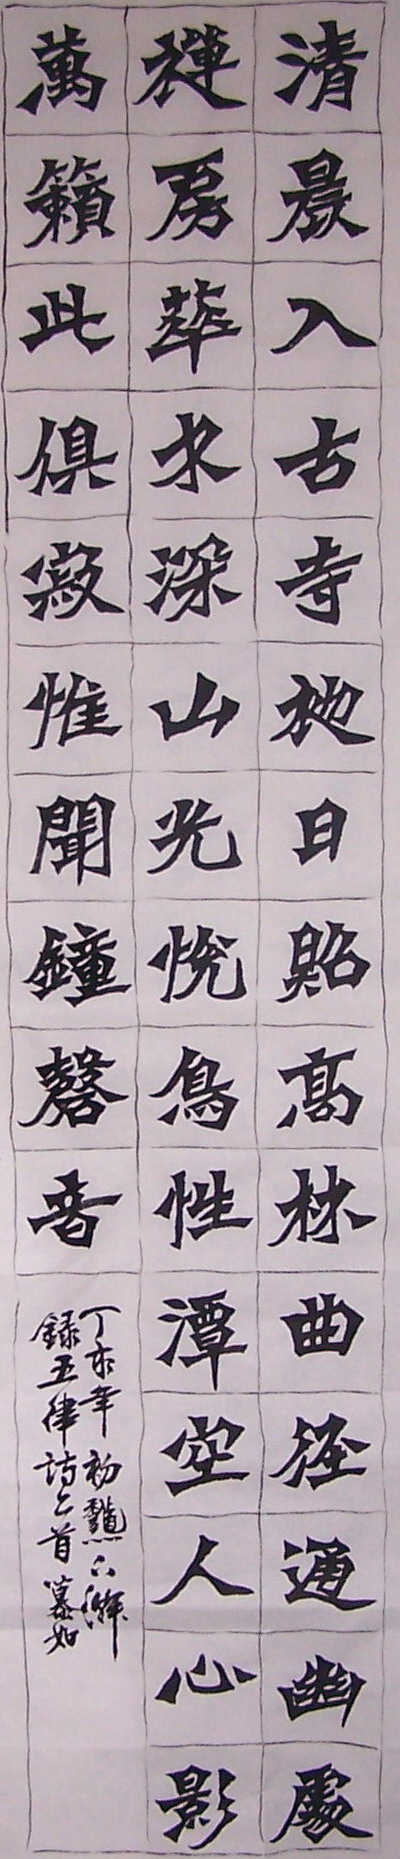 清晨入古寺初日照高林曲徑通幽處
禪房華木深山光悅鳥性潭空人心影
萬籟此俱寂惟聞鐘磬音
丁亥年初
錄五律詩一首慕如